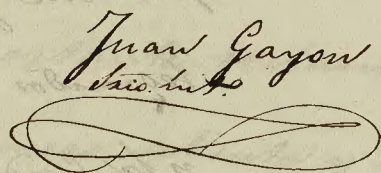 Juan Gayon
Srio. int.º